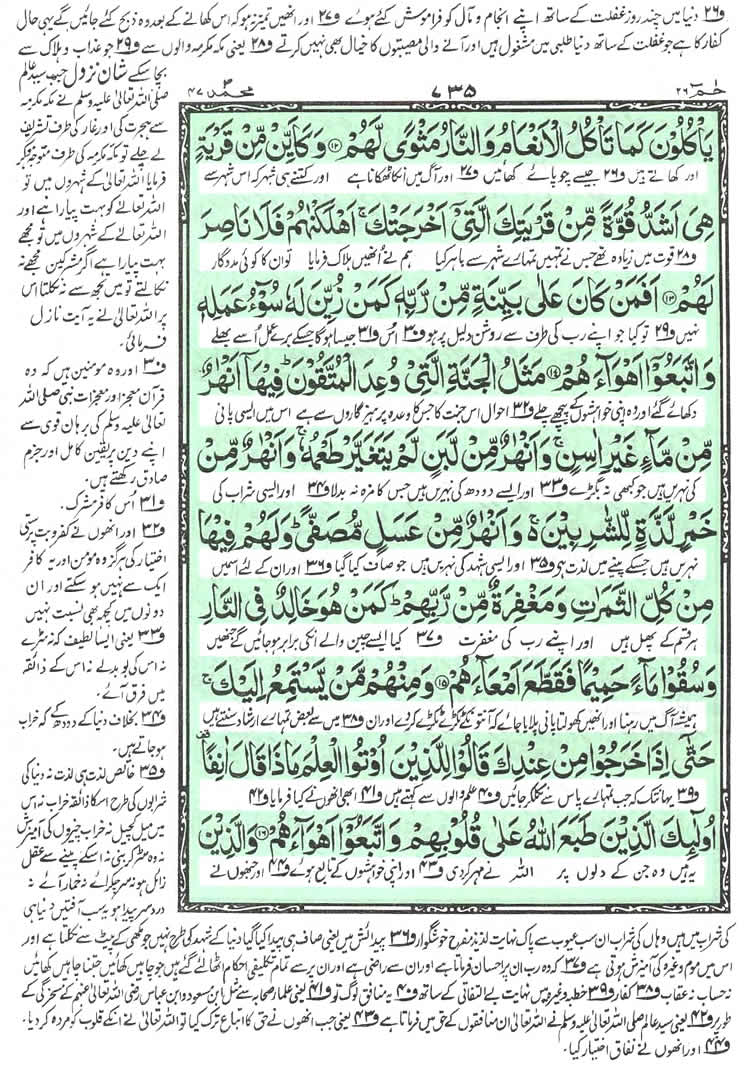 و۲۶ دنیا میں چند روز غفلت کے ساتھ اپنے انجام و مآل کو فراموش کئے ہوئے و۲۷ اور انھیں تمیز نہ ہو کہ اس کھانے کے بعد وہ ذبح کئے جائیں گے یہی حال
کفار کا ہے جو غفلت کے ساتھ دنیا طلبی میں مشغول ہیں اور آنے والی مصیبتوں کا خیال بھی نہیں کرتے و۲۸ یعنی مکہ مکرمہ والوں سے و۲۹ جو عذاب و ہلاک سے
بچا سکے شان نزول جب سید عالم
صلی اللہ تعالیٰ علیہ وسلم نے مکہ مکرمہ
سے ہجرت کی اور غار کی طرف تشریف
لے چلے تو مکہ مکرمہ کی طرف متوجہ ہو کر
فرمایا اللہ تعالیٰ کے شہروں میں تو
اللہ تعالےٰ کو بہت پیارا ہے اور
اللہ تعالےٰ کے شہروں میں تو مجھے
بہت پیارا ہے اگر مشرکین مجھے نہ
نکالتے تو میں تجھ سے نہ نکلتا اس
پر اللہ تعالیٰ نے یہ آیت نازل
فرمائی۔
و۳۰ اور وہ مومنین ہیں کہ وہ
قرآن معجز اور معجزات نبی صلی اللہ
تعالیٰ علیہ وسلم کی برہان قوی سے
اپنے دین پر یقین کامل اور جزم
صادق رکھتے ہیں۔
و۳۱ اس کافر مشرک۔
و۳۲ اور انھوں نے کفر و بت پرستی
اختیار کی ہرگز وہ مومن اور یہ کافر
ایک سے نہیں ہو سکتے اور ان
دونوں میں کچھ بھی نسبت نہیں
و۳۳ یعنی ایسا لطیف کہ نہ سڑے
نہ اس کی بو بدلے نہ اس کے ذائقہ
میں فرق آئے۔
و۳۴ بخلاف دنیا کے دودھ کے کہ خراب
ہو جاتے ہیں۔
و۳۵ خالص لذت ہی لذت نہ دنیا کی
شرابوں کی طرح اسکا ذائقہ خراب نہ اس
میں میل کچیل نہ خراب چیزوں کی آمیزش
نہ وہ سڑ کر بنی نہ اسکے پینے سے عقل
زائل ہو نہ سر چکرائے نہ خمار آئے نہ
درد سر پیدا ہو یہ سب آفتیں دنیا ہی
حٰمٓ ۲۶
۷۳۵
محمد ۴۷
يَاْكُلُوْنَ كَمَا تَاْكُلُ الْاَنْعَامُ وَالنَّارُ مَثْوًى لَّهُمْ ۝۱۲ وَكَاَيِّنْ مِّنْ قَرْيَةٍ
اور کھاتے ہیں و۲۶ جیسے چوپائے کھائیں و۲۷ اور آگ میں انکا ٹھکانا ہے اور کتنے ہی شہر کہ اس شہر سے
هِيَ اَشَدُّ قُوَّةً مِّنْ قَرْيَتِكَ الَّتِيْٓ اَخْرَجَتْكَ ۚ اَهْلَكْنٰهُمْ فَلَا نَاصِرَ
و۲۸ قوت میں زیادہ تھے جس نے تمہیں تمہارے شہر سے باہر کیا ہم نے انھیں ہلاک فرمایا تو ان کا کوئی مددگار
لَهُمْ ۝۱۳ اَفَمَنْ كَانَ عَلٰى بَيِّنَةٍ مِّنْ رَّبِّهٖ كَمَنْ زُيِّنَ لَهٗ سُوْٓءُ عَمَلِهٖ
نہیں و۲۹ تو کیا جو اپنے رب کی طرف سے روشن دلیل پر ہو و۳۰ اُس و۳۱ جیسا ہوگا جسکے برے عمل اُسے بھلے
وَاتَّبَعُوْٓا اَهْوَآءَهُمْ ۝۱۴ مَثَلُ الْجَنَّةِ الَّتِيْ وُعِدَ الْمُتَّقُوْنَ ؕ فِيْهَآ اَنْهٰرٌ
دکھائے گئے اور وہ اپنی خواہشوں کے پیچھے چلے و۳۲ احوال اس جنت کا جس کا وعدہ پرہیزگاروں سے ہے اس میں ایسی پانی
مِّنْ مَّآءٍ غَيْرِ اٰسِنٍ ۚ وَاَنْهٰرٌ مِّنْ لَّبَنٍ لَّمْ يَتَغَيَّرْ طَعْمُهٗ ۚ وَاَنْهٰرٌ مِّنْ
کی نہریں ہیں جو کبھی نہ بگڑے و۳۳ اور ایسے دودھ کی نہریں ہیں جس کا مزہ نہ بدلا و۳۴ اور ایسی شراب کی
خَمْرٍ لَّذَّةٍ لِّلشّٰرِبِيْنَ ۚ وَاَنْهٰرٌ مِّنْ عَسَلٍ مُّصَفًّى ؕ وَلَهُمْ فِيْهَا
نہریں ہیں جسکے پینے میں لذت ہی و۳۵ اور ایسی شہد کی نہریں ہیں جو صاف کیا گیا و۳۶ اور ان کے لئے اسمیں
مِنْ كُلِّ الثَّمَرٰتِ وَمَغْفِرَةٌ مِّنْ رَّبِّهِمْ ؕ كَمَنْ هُوَ خَالِدٌ فِي النَّارِ
ہر قسم کے پھل ہیں اور اپنے رب کی مغفرت و۳۷ کیا ایسے چین والے انکی برابر ہو جائیں گے جنھیں
وَسُقُوْا مَآءً حَمِيْمًا فَقَطَّعَ اَمْعَآءَهُمْ ۝۱۵ وَمِنْهُمْ مَّنْ يَّسْتَمِعُ اِلَيْكَ ۚ
ہمیشہ آگ میں رہنا اور انھیں کھولتا پانی پلایا جائے کہ آنتوں کے ٹکڑے ٹکڑے کر دے اور ان و۳۸ میں سے بعض تمہارے ارشاد سنتے ہیں
حَتّٰٓى اِذَا خَرَجُوْا مِنْ عِنْدِكَ قَالُوْا لِلَّذِيْنَ اُوْتُوا الْعِلْمَ مَاذَا قَالَ اٰنِفًا
و۳۹ یہانتک کہ جب تمہارے پاس سے نکل کر جائیں و۴۰ علم والوں سے کہتے ہیں و۴۱ ابھی انھوں نے کیا فرمایا و۴۲
اُولٰٓئِكَ الَّذِيْنَ طَبَعَ اللّٰهُ عَلٰى قُلُوْبِهِمْ وَاتَّبَعُوْٓا اَهْوَآءَهُمْ ۝۱۶ وَالَّذِيْنَ
یہ ہیں وہ جن کے دلوں پر اللہ نے مہر کر دی و۴۳ اور اپنی خواہشوں کے تابع ہوئے و۴۴ اور جنھوں نے
کی شراب میں ہیں وہاں کی شراب ان سب عیوب سے پاک نہایت لذیذ مفرح خوشگوار و۳۶ پیدائش میں یعنی صاف ہی پیدا کیا گیا دنیا کے شہد کی طرح نہیں جو مکھی کے پیٹ سے نکلتا ہے اور
اس میں موم وغیرہ کی آمیزش ہوتی ہے و۳۷ کہ وہ رب ان پر احسان فرماتا ہے اور ان سے راضی ہے اور ان پر سے تمام تکلیفی احکام اٹھا لئے گئے ہیں جو چاہیں کھائیں جتنا چاہیں کھائیں
نہ حساب نہ عقاب و۳۸ کفار و۳۹ خطبہ وغیرہ میں نہایت بے التفاتی کے ساتھ و۴۰ یہ منافق لوگ تو و۴۱ یعنی علماء صحابہ سے مثل ابن مسعود و ابن عباس رضی اللہ تعالیٰ عنہم کے مسخرگی کے
طور پر و۴۲ یعنی سید عالم صلی اللہ تعالیٰ علیہ وسلم نے اللہ تعالیٰ ان منافقوں کے حق میں فرماتا ہے و۴۳ یعنی جب انھوں نے حق کا اتباع ترک کیا تو اللہ تعالیٰ نے انکے قلوب کو مردہ کر دیا۔
و۴۴ اور انھوں نے نفاق اختیار کیا۔